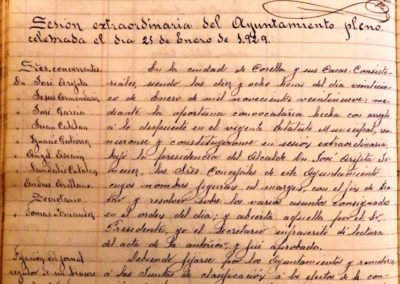 Sesión extraordinaria del Ayuntamiento pleno
celebrada el día 25 de Enero de 1.929.
Sres. concurrentes
Dn José Arizta
" Jesús
" José García
" Juan Esteban
" Ignacio
" Angel
" Sandalio Catalan
" Andrés Arellano
Secretario
Tomás
Fijación del jornal
regulador de un bracero
En la ciudad de Corella y sus Casas Consisto-
riales, siendo las diez y ocho horas del día veinticin-
co de Enero de mil novecientos veintinueve, me-
diante la oportuna convocatoria hecha con arreglo
á lo dispuesto en el vigente Estatuto Municipal, se reu-
nieron y constituyeron en sesión extraordinaria
bajo la presidencia del Alcalde Dn José Arizta Ji-
menez, los Sres Concejales de este Ayuntamiento
cuyos nombres figuran al margen, con el fin de tra-
tar y resolver sobre los varios asuntos consignados
en el orden del día; y abierta aquella por el Sr.
Presidente, yo el Secretario infrascrito di lectura
del acta de la anterior y fué aprobada.
Debiendo fijarse por los Ayuntamientos y remitirse
á las Juntas de clasificación á los efectos de la con-